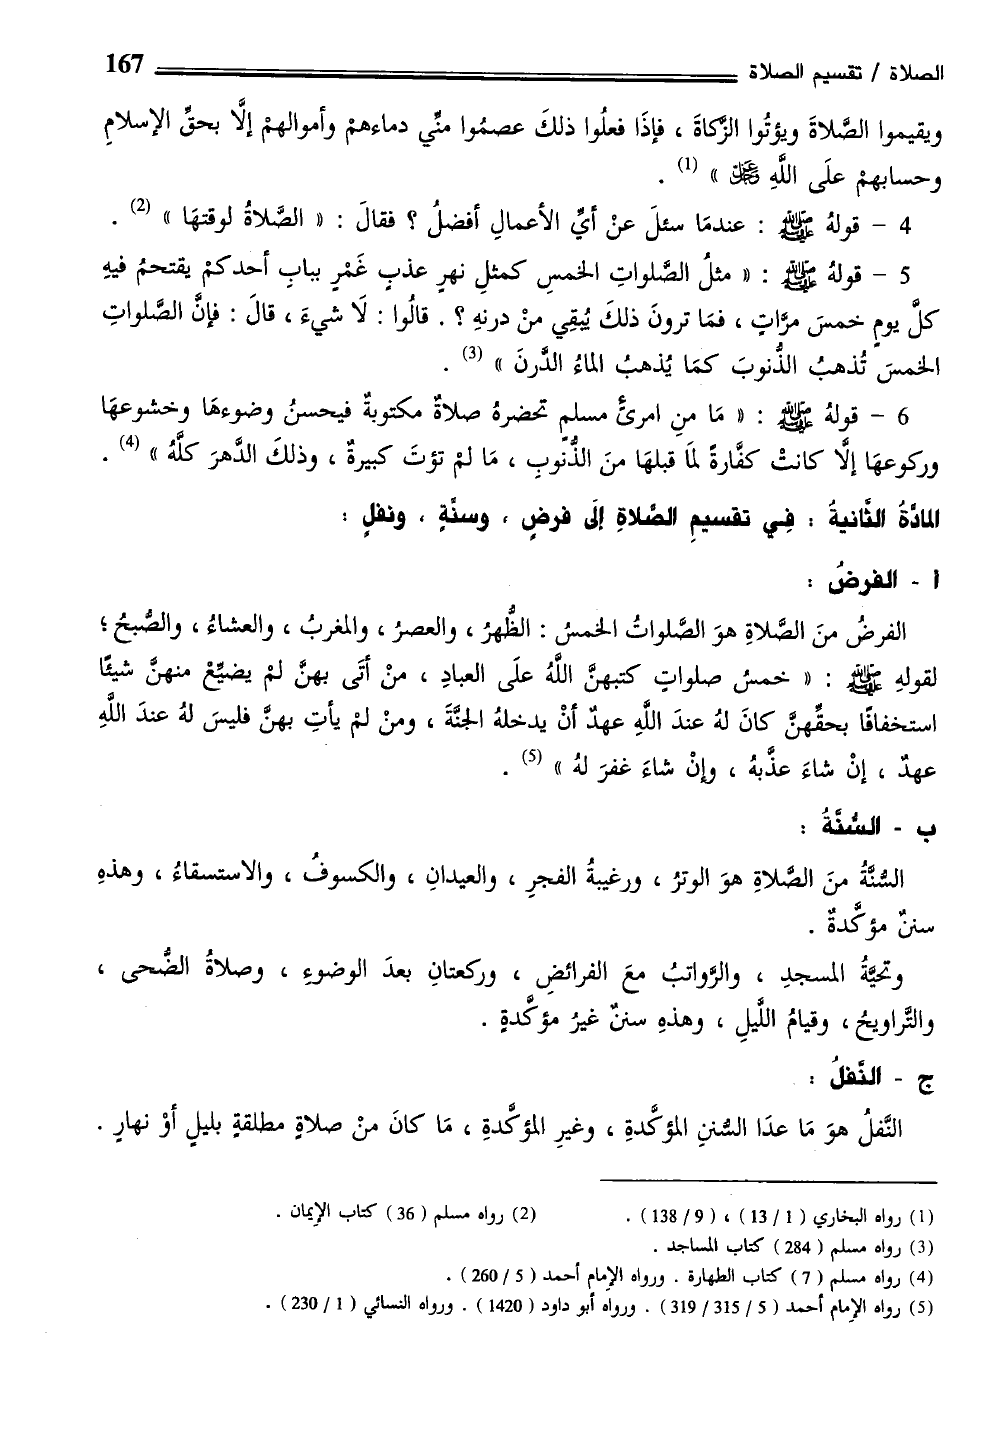 الصلاة / تقسيم الصلاة 167
ويقيموا الصَّلاةَ ويؤتُوا الزَّكاةَ ، فإذَا فعلُوا ذلكَ عصمُوا منِّي دماءهمْ وأموالهمْ إلَّا بحقِّ الإسلامِ
وحسابهمْ علَى اللَّهِ ﷿ » (1) .
4 - قولهُ ﷺ : عندمَا سئلَ عنْ أيِّ الأعمالِ أفضلُ ؟ فقالَ : « الصَّلاةُ لوقتهَا » (2) .
5 - قولهُ ﷺ : « مثلُ الصَّلواتِ الخمسِ كمثلِ نهرٍ عذبٍ غَمْرٍ ببابِ أحدكمْ يقتحمُ فيهِ
كلَّ يومٍ خمسَ مرَّاتٍ ، فمَا ترونَ ذلكَ يُبقِي منْ درنهِ ؟ . قالُوا : لَا شيءَ ، قالَ : فإنَّ الصَّلواتِ
الخمسَ تُذهبُ الذُّنوبَ كمَا يُذهبُ الماءُ الدَّرنَ » (3) .
6 - قولهُ ﷺ : « مَا منِ امرئٍ مسلمٍ تحضرهُ صلاةٌ مكتوبةٌ فيحسنُ وضوءهَا وخشوعهَا
وركوعهَا إلَّا كانتْ كفَّارةً لمَا قبلهَا منَ الذُّنوبِ ، مَا لمْ تؤتَ كبيرةٌ ، وذلكَ الدَّهرَ كلَّهُ » (4) .
المادَّةُ الثَّانيةُ : فِي تقسيمِ الصَّلاةِ إلَى فرضٍ ، وسنَّةٍ ، ونفلٍ :
أ - الفرضُ :
الفرضُ منَ الصَّلاةِ هوَ الصَّلواتُ الخمسُ : الظُّهرُ ، والعصرُ ، والمغربُ ، والعشاءُ ، والصُّبحُ ؛
لقولهِ ﷺ : « خمسُ صلواتٍ كتبهنَّ اللَّهُ علَى العبادِ ، منْ أتَى بهنَّ لمْ يضيِّعْ منهنَّ شيئًا
استخفافًا بحقِّهنَّ كانَ لهُ عندَ اللَّهِ عهدٌ أنْ يدخلهُ الجنَّةَ ، ومنْ لمْ يأتِ بهنَّ فليسَ لهُ عندَ اللَّهِ
عهدٌ ، إنْ شاءَ عذَّبهُ ، وإنْ شاءَ غفرَ لهُ » (5) .
ب - السُّنَّةُ :
السُّنَّةُ منَ الصَّلاةِ هوَ الوترُ ، ورغيبةُ الفجرِ ، والعيدانِ ، والكسوفُ ، والاستسقاءُ ، وهذهِ
سننٌ مؤكَّدةٌ .
وتحيَّةُ المسجدِ ، والرَّواتبُ معَ الفرائضِ ، وركعتانِ بعدَ الوضوءِ ، وصلاةُ الضُّحى ،
والتَّراويحُ ، وقيامُ اللَّيلِ ، وهذهِ سننٌ غيرُ مؤكَّدةٍ .
ج - النَّفلُ :
النَّفلُ هوَ مَا عدَا السُّننِ المؤكَّدةِ ، وغيرِ المؤكَّدةِ ، مَا كانَ منْ صلاةٍ مطلقةٍ بليلٍ أوْ نهارٍ .
(1) رواه البخاري ( 1 / 13 ) ، ( 9 / 138 ) . (2) رواه مسلم ( 36 ) كتاب الإيمان .
(3) رواه مسلم ( 284 ) كتاب المساجد .
(4) رواه مسلم ( 7 ) كتاب الطهارة . ورواه الإمام أحمد ( 5 / 260 ) .
(5) رواه الإمام أحمد ( 5 / 315 / 319 ) . ورواه أبو داود ( 1420 ) . ورواه النسائي ( 1 / 230 ) .